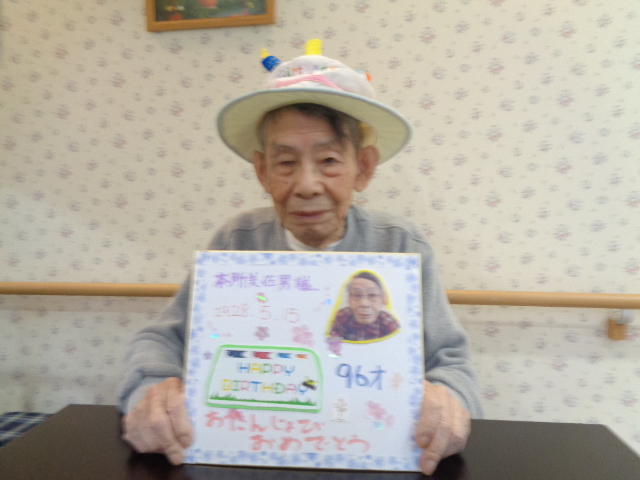 本所美佐男様
1928.5.15
HAPPY
BIRTHDAY
96才
おたんじょび
おめでとう